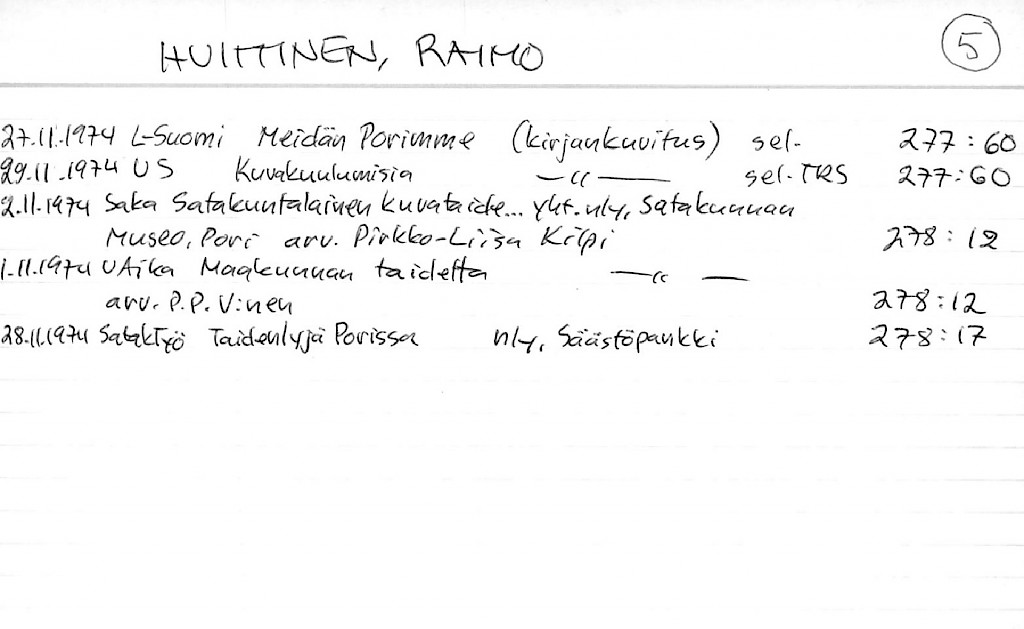 HUITTINEN, RAIMO 5
27.11.1974 L-Suomi Meidän Porimme (kirjankuvitus) sel- 277:60
29.11.1974 US Kuvakuulumisia —"— sel-TRS 277:60
2.11.1974 Saka Satakuntalainen kuvataide... yht.nly, Satakunnan
Museo, Pori arv. Pirkko-Liisa Kilpi 278:12
1.11.1974 UAika Maakunnan taidetta —"—
arv. P.P. V:nen 278:12
28.11.1974 SatakTyö Taidenlyjä Porissa nly, Säästöpankki 278:17